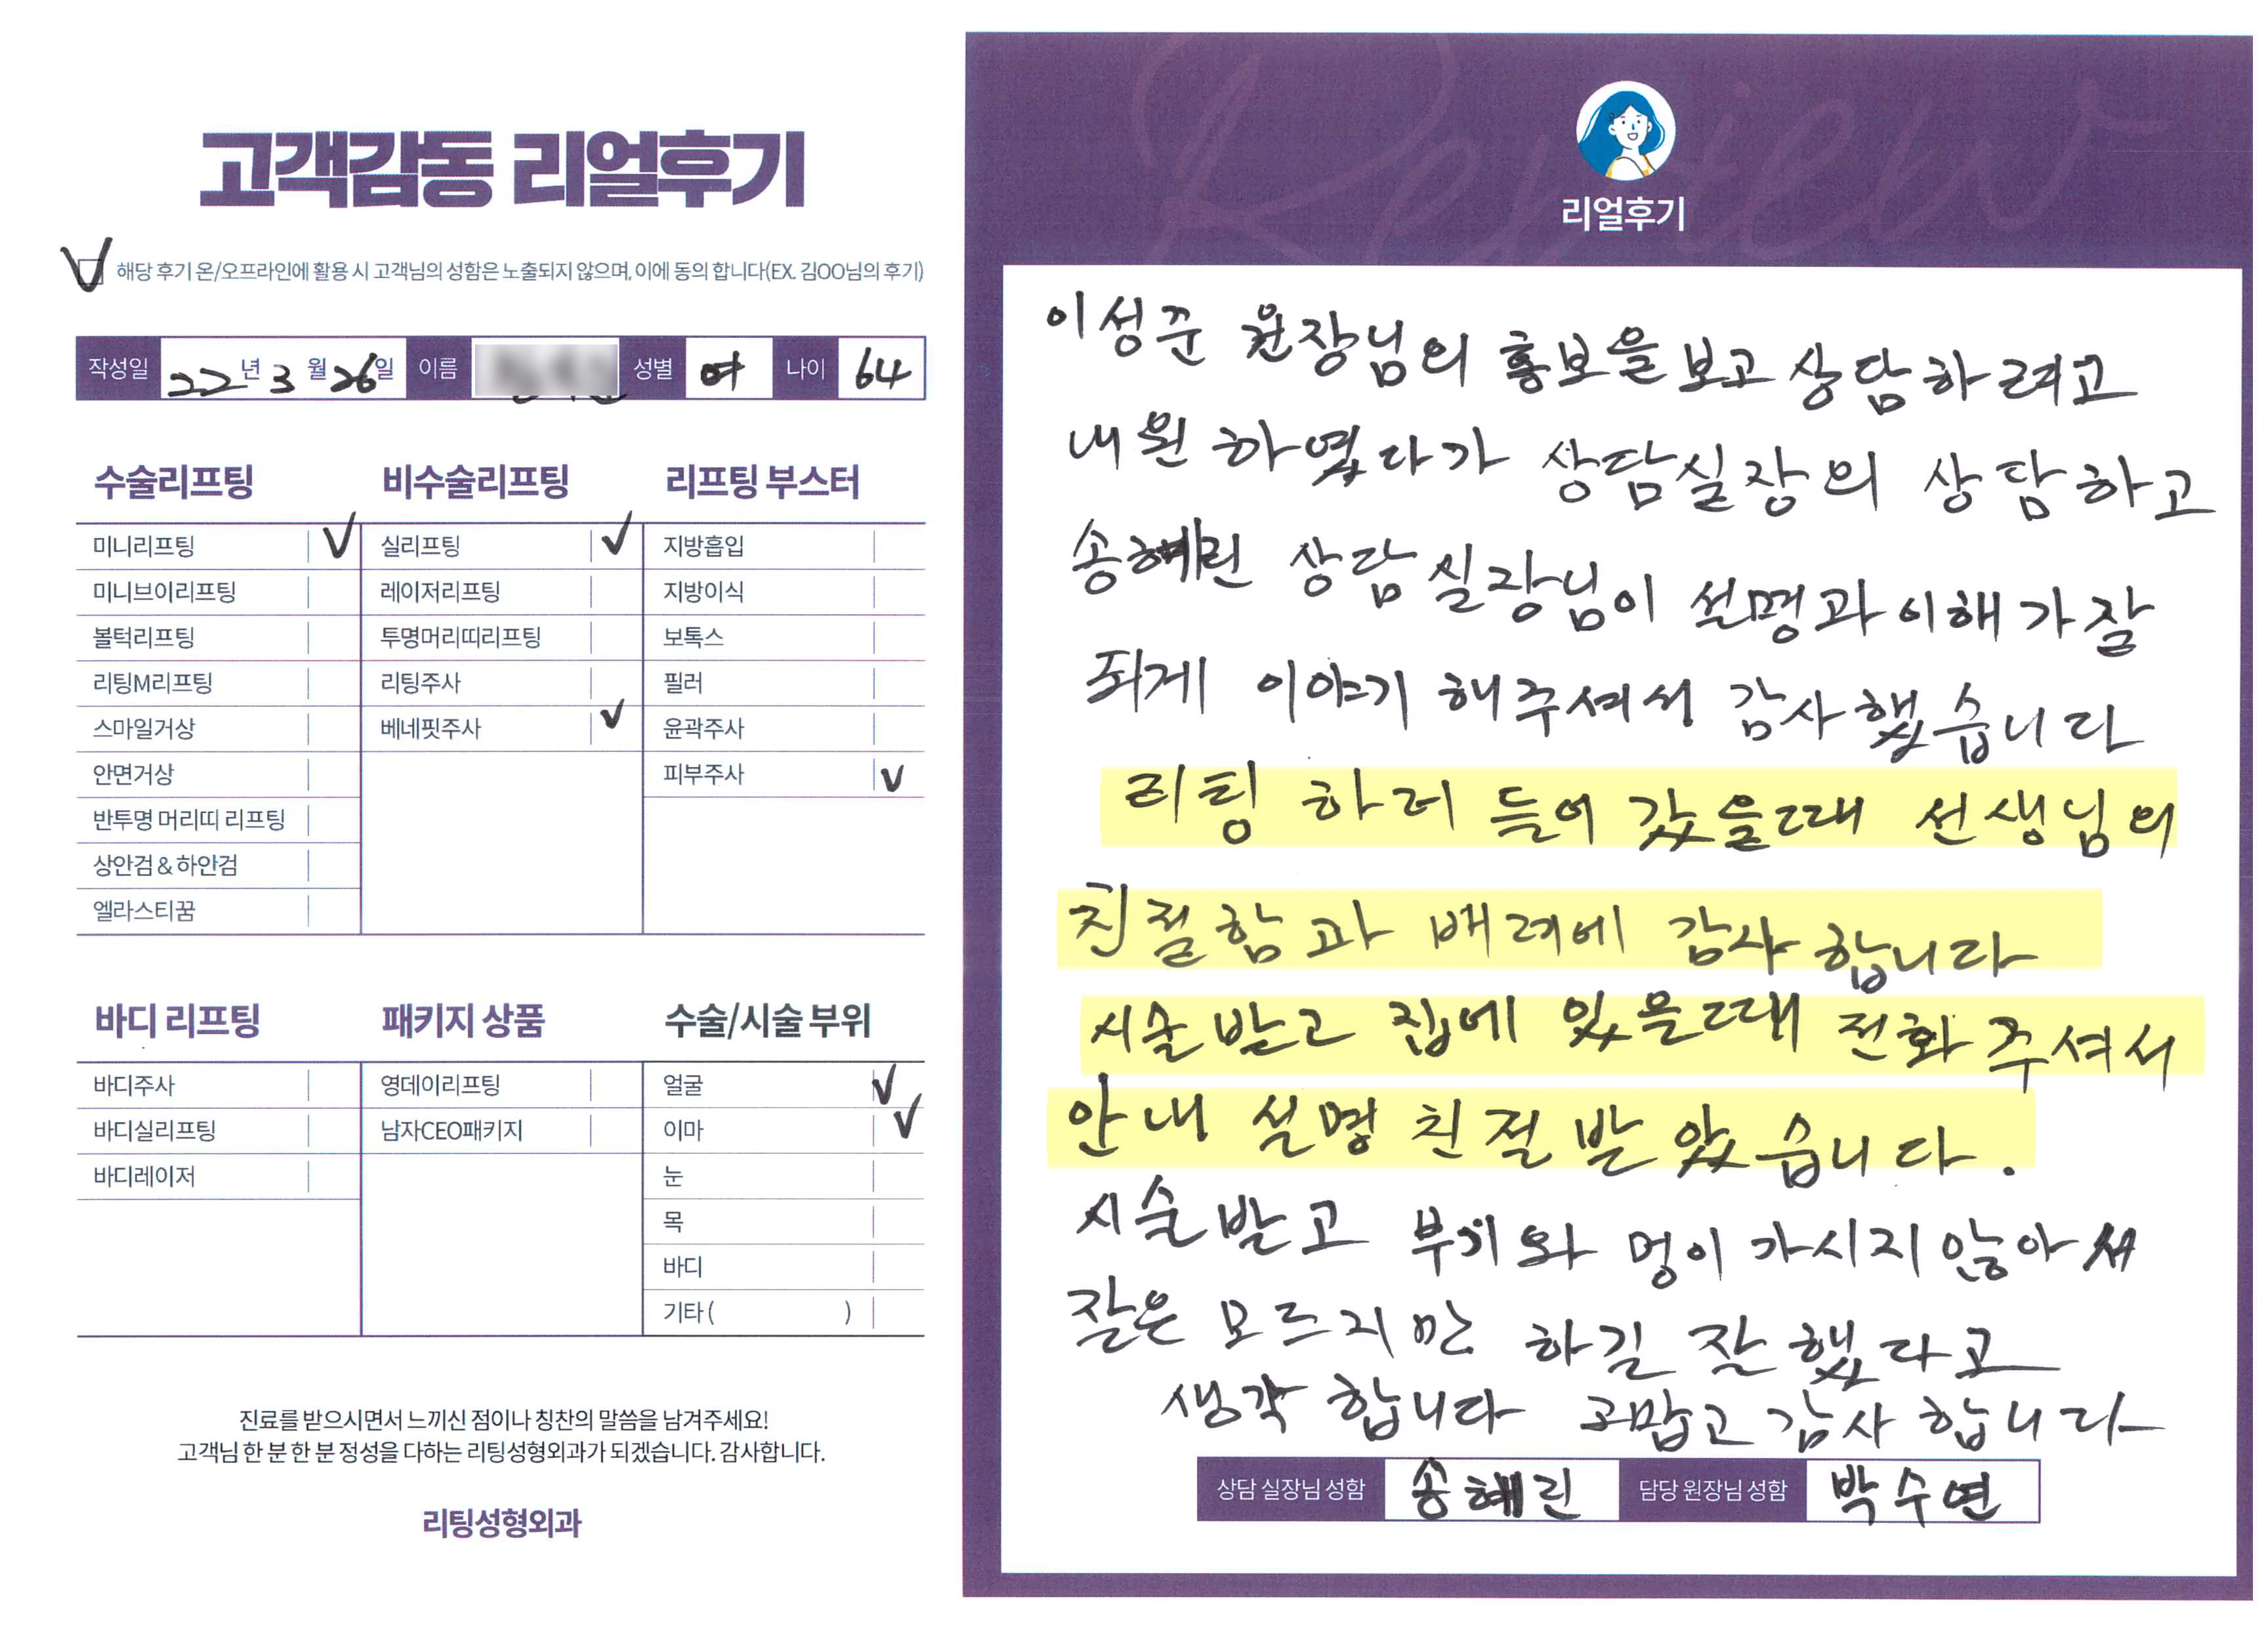 고객감동 리얼후기
V 해당 후기 온/오프라인에 활용 시 고객님의 성함은 노출되지 않으며, 이에 동의 합니다(EX. 김OO님의 후기)
작성일 22년 3월 26일 이름 성별 여 나이 64
수술리프팅 비수술리프팅 리프팅 부스터
미니리프팅 V 실리프팅 V 지방흡입
미니브이리프팅 레이저리프팅 지방이식
볼턱리프팅 투명머리띠리프팅 보톡스
리팅M리프팅 리팅주사 필러
스마일거상 베네핏주사 V 윤곽주사
안면거상 피부주사 V
반투명 머리띠 리프팅
상안검 & 하안검
엘라스티꿈
바디 리프팅 패키지 상품 수술/시술 부위
바디주사 영데이리프팅 얼굴 V
바디실리프팅 남자CEO패키지 이마 V
바디레이저 눈
목
바디
기타 ( )
진료를 받으시면서 느끼신 점이나 칭찬의 말씀을 남겨주세요!
고객님 한 분 한 분 정성을 다하는 리팅성형외과가 되겠습니다. 감사합니다.
리팅성형외과
Review
리얼후기
이성준 원장님의 홍보을 보고 상담하려고
내원 하였다가 상담실장의 상담하고
송혜린 상담실장님이 설명과 이해가 잘
되게 이야기 해주셔서 감사했습니다
리팅 하러 들어 갔을때 선생님의
친절함과 배려에 감사합니다
시술받고 집에 있을때 전화 주셔서
안내 설명 친절 받았습니다.
시술받고 부기와 멍이 가시지 않아서
잘은 모르지만 하길 잘했다고
생각합니다 고맙고 감사합니다
상담 실장님 성함 송혜린 담당 원장님 성함 박수연